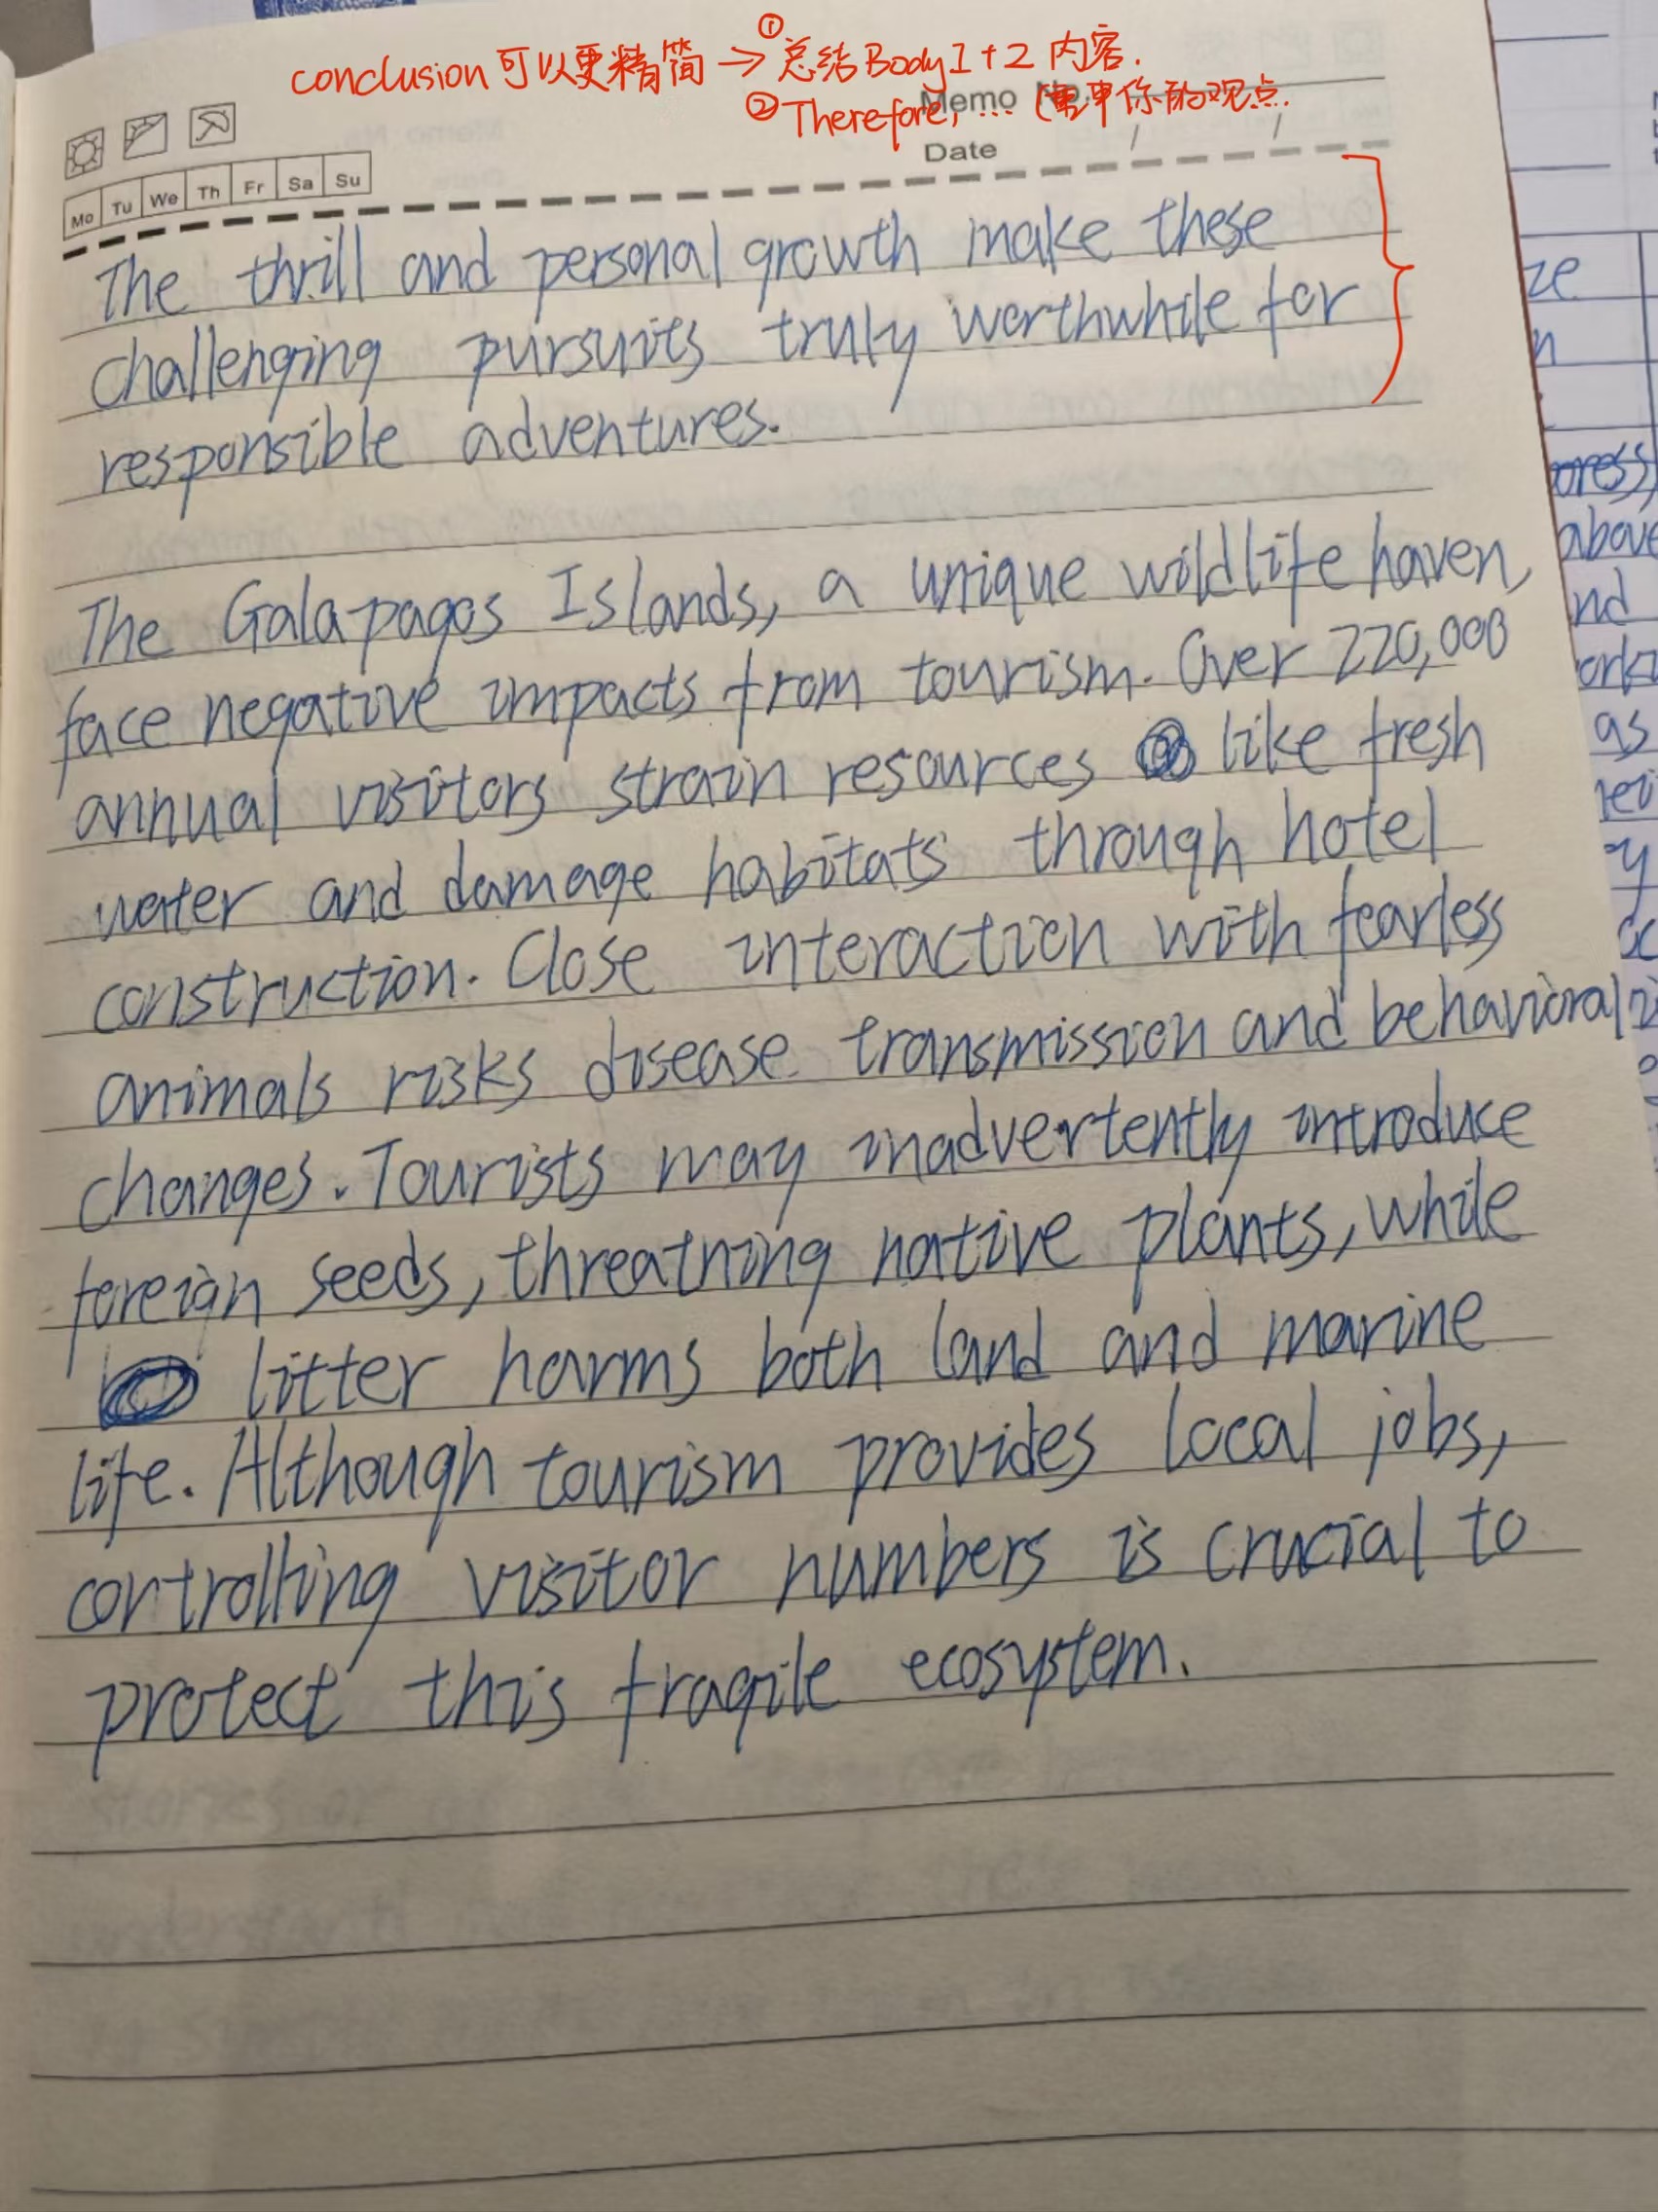 conclusion 可以更精简 → ① 总结 Body 1 + 2 内容.
② Therefore, ... (重申你的观点.
Memo No.
Date / /
Mo Tu We Th Fr Sa Su
The thrill and personal growth make these
challenging pursuits truly worthwhile for
responsible adventures.
The Galapagos Islands, a unique wildlife haven,
face negative impacts from tourism. Over 220,000
annual visitors strain resources like fresh
water and damage habitats through hotel
construction. Close interaction with fearless
animals risks disease transmission and behavioral
changes. Tourists may inadvertently introduce
foreign seeds, threatning native plants, while
litter harms both land and marine
life. Although tourism provides local jobs,
controlling visitor numbers is crucial to
protect this fragile ecosystem.
ze
n
above
nd
as
y